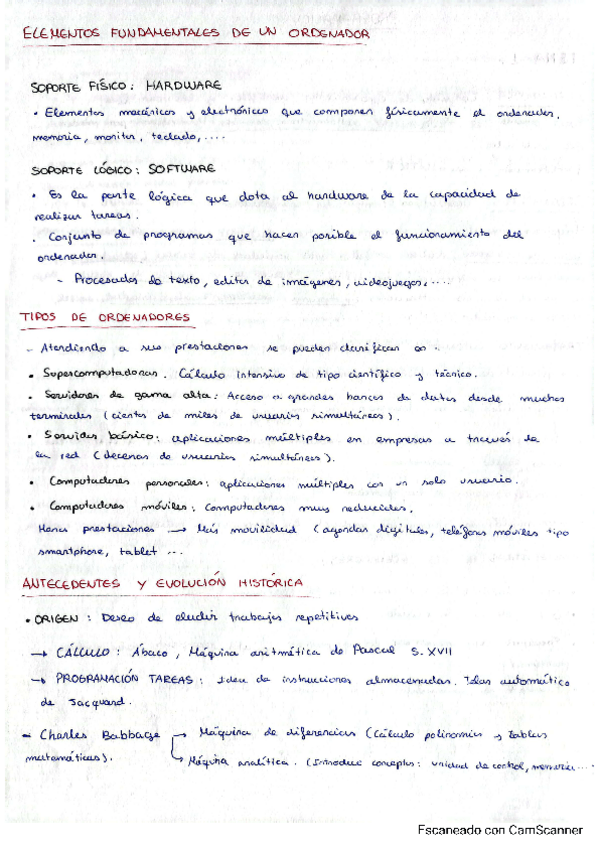 ELEMENTOS FUNDAMENTALES DE UN ORDENADOR
SOPORTE FÍSICO: HARDWARE
• Elementos mecánicos y electrónicos que componen físicamente el ordenador,
memoria, monitor, teclado,....
SOPORTE LÓGICO: SOFTWARE
• Es la parte lógica que dota al hardware de la capacidad de
realizar tareas.
• Conjunto de programas que hacen posible el funcionamiento del
ordenador.
- Procesador de texto, editor de imágenes, videojuegos,....
TIPOS DE ORDENADORES
- Atendiendo a sus prestaciones se pueden clasificar en:
• Supercomputadoras. Cálculo intensivo de tipo científico y técnico.
• Servidores de gama alta: Acceso a grandes bancos de datos desde muchos
terminales (cientos de miles de usuarios simultáneos).
• Servidor básico: aplicaciones múltiples en empresas a través de
la red (decenas de usuarios simultáneos).
• Computadores personales: aplicaciones múltiples con un solo usuario.
• Computadores móviles: Computadores muy reducidos.
Menos prestaciones → Más movilidad (agendas digitales, teléfonos móviles tipo
smartphone, tablet ...
ANTECEDENTES Y EVOLUCIÓN HISTÓRICA
• ORIGEN: Deseo de eludir trabajos repetitivos
→ CÁLCULO: Ábaco, Máquina aritmética de Pascal S. XVII
→ PROGRAMACIÓN TAREAS: Idea de instrucciones almacenadas. Telar automático
de Jacquard.
- Charles Babbage → Máquina de diferencias (Cálculo polinomios y tablas
matemáticas).
→ Máquina analítica. (Introduce conceptos: unidad de control, memoria...
Escaneado con CamScanner